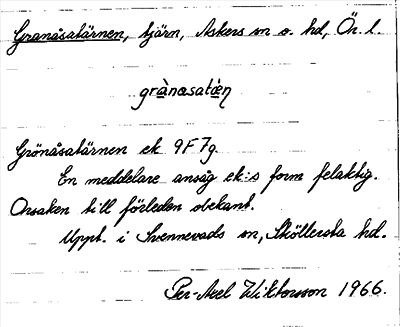 Granåsatärnen, tjärn, Askers sn o. hd, Ör. l.
grànasatæ̀ṇ
Grönåsatärnen ek 9F7g.
En meddelare ansåg ek:s form felaktig.
Orsaken till förleden obekant.
Uppt. i Svennevads sn, Sköllersta hd.
Per-Axel Wiktorsson 1966.